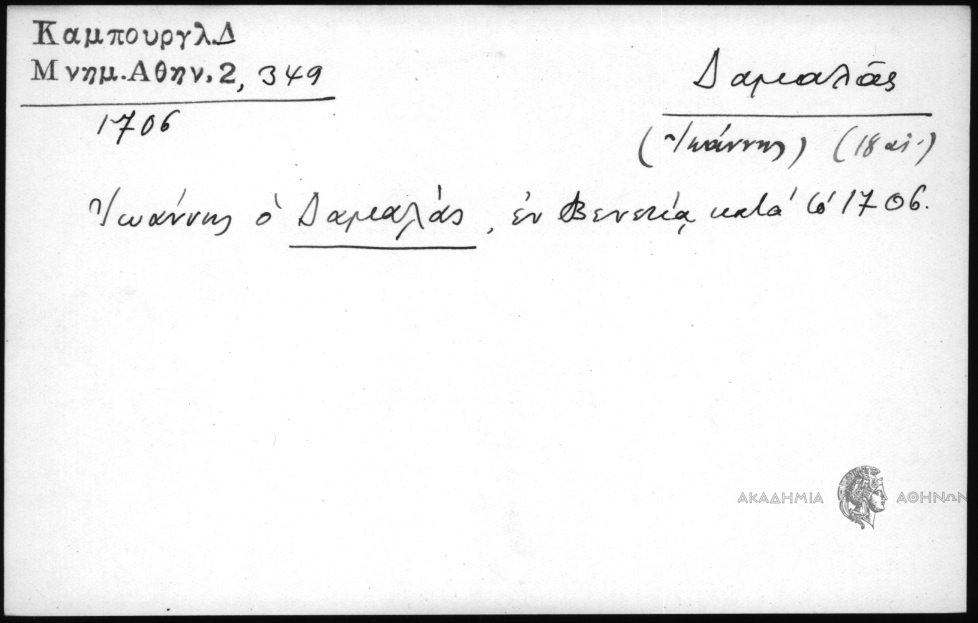 Καμπουργλ.Δ
Μνημ.Αθην.2, 349
1706
Δαμαλᾶς
(Ἰωάννης) (18 αἰ.)
Ἰωάννης ὁ Δαμαλᾶς, ἐν Βενετίᾳ κατά τό 1706.
ΑΚΑΔΗΜΙΑ ΑΘΗΝΩΝ